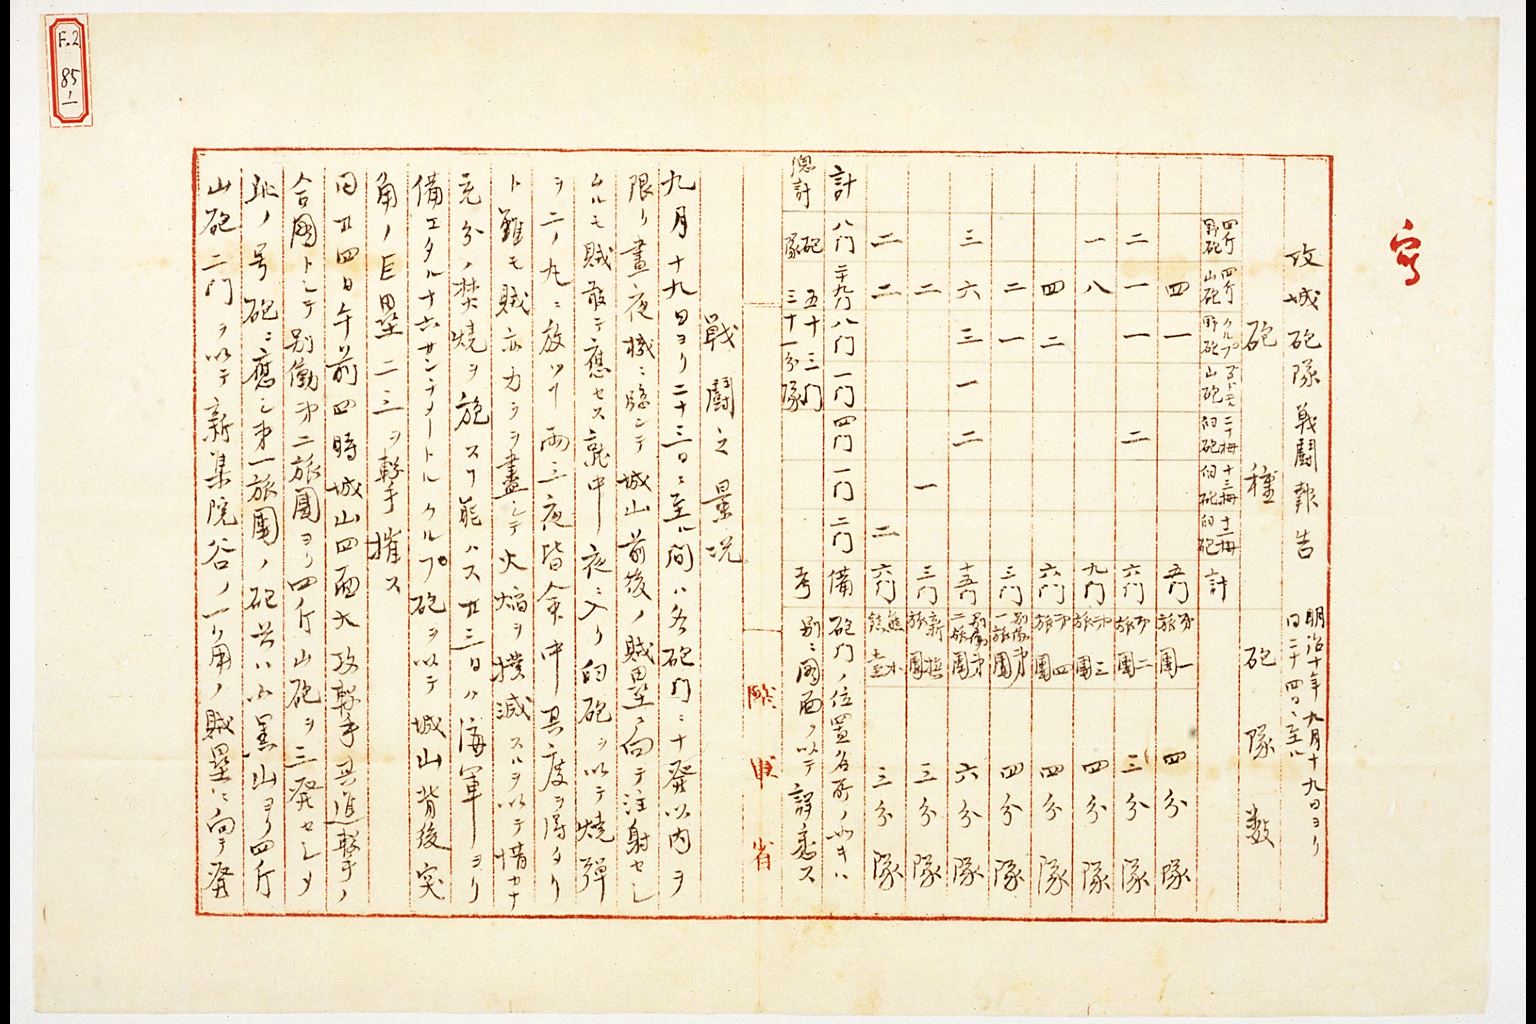 寫
攻城砲隊戰鬪報告 明治十年九月十九日ヨリ 同二十四日ニ至ル
砲種 砲隊数
四斤野砲 四斤山砲 クルプ野砲 ブロドエル山砲 二十拇臼砲 十三拇臼砲 十二拇臼砲 計
四 一 五門 第一旅團 四分隊
二 一 一 二 六門 第二旅團 三分隊
一 八 九門 第三旅團 四分隊
四 二 六門 第四旅團 四分隊
二 一 三門 別働第一旅團 四分隊
三 六 三 一 二 十五門 別働第二旅團 六分隊
二 一 三門 新撰旅團 三分隊
二 二 二 六門 熊本鎮臺 三分隊
計 八門 二十九門 八門 一門 四門 一門 二門 備 砲門ノ位置名所ノ如キハ
總計 砲 五十三門 隊 三十一分隊 考 別ニ圖面ヲ以テ詳悉ス
陸軍省
戰鬪之景况
九月十九日ヨリ二十三日ニ至ル間ハ各砲門ニ十發以内ヲ
限リ晝夜機ニ臨ンテ城山前後ノ賊壘ニ向テ注射セシ
ムルモ賊敢テ應セス就中夜ニ入リ臼砲ヲ以テ燒彈
ヲ二ノ丸ニ放ツ丅兩三夜皆命中其度ヲ得タリ
ト雖モ賊亦力ヲ盡シテ火焔ヲ撲滅スルヲ以テ惜カナ
充分ノ焚燒ヲ施スヿ能ハス廿三日ハ海軍ヨリ
備エタル十六サンチメートルクルプ砲ヲ以テ城山背後突
角ノ巨壘二三ヲ擊手摧ス
同廿四日午前四時城山四面大攻擊手是進擊手ノ
合圖トシテ別働第二旅團ヨリ四斤山砲ヲ三發セシメ
此ノ号砲ニ應シ第一旅團ノ砲共ハ小黒山ヨリ四斤
山砲二門ヲ以テ新集院谷ノ一角ノ賊壘ニ向テ發
F.2
85
1